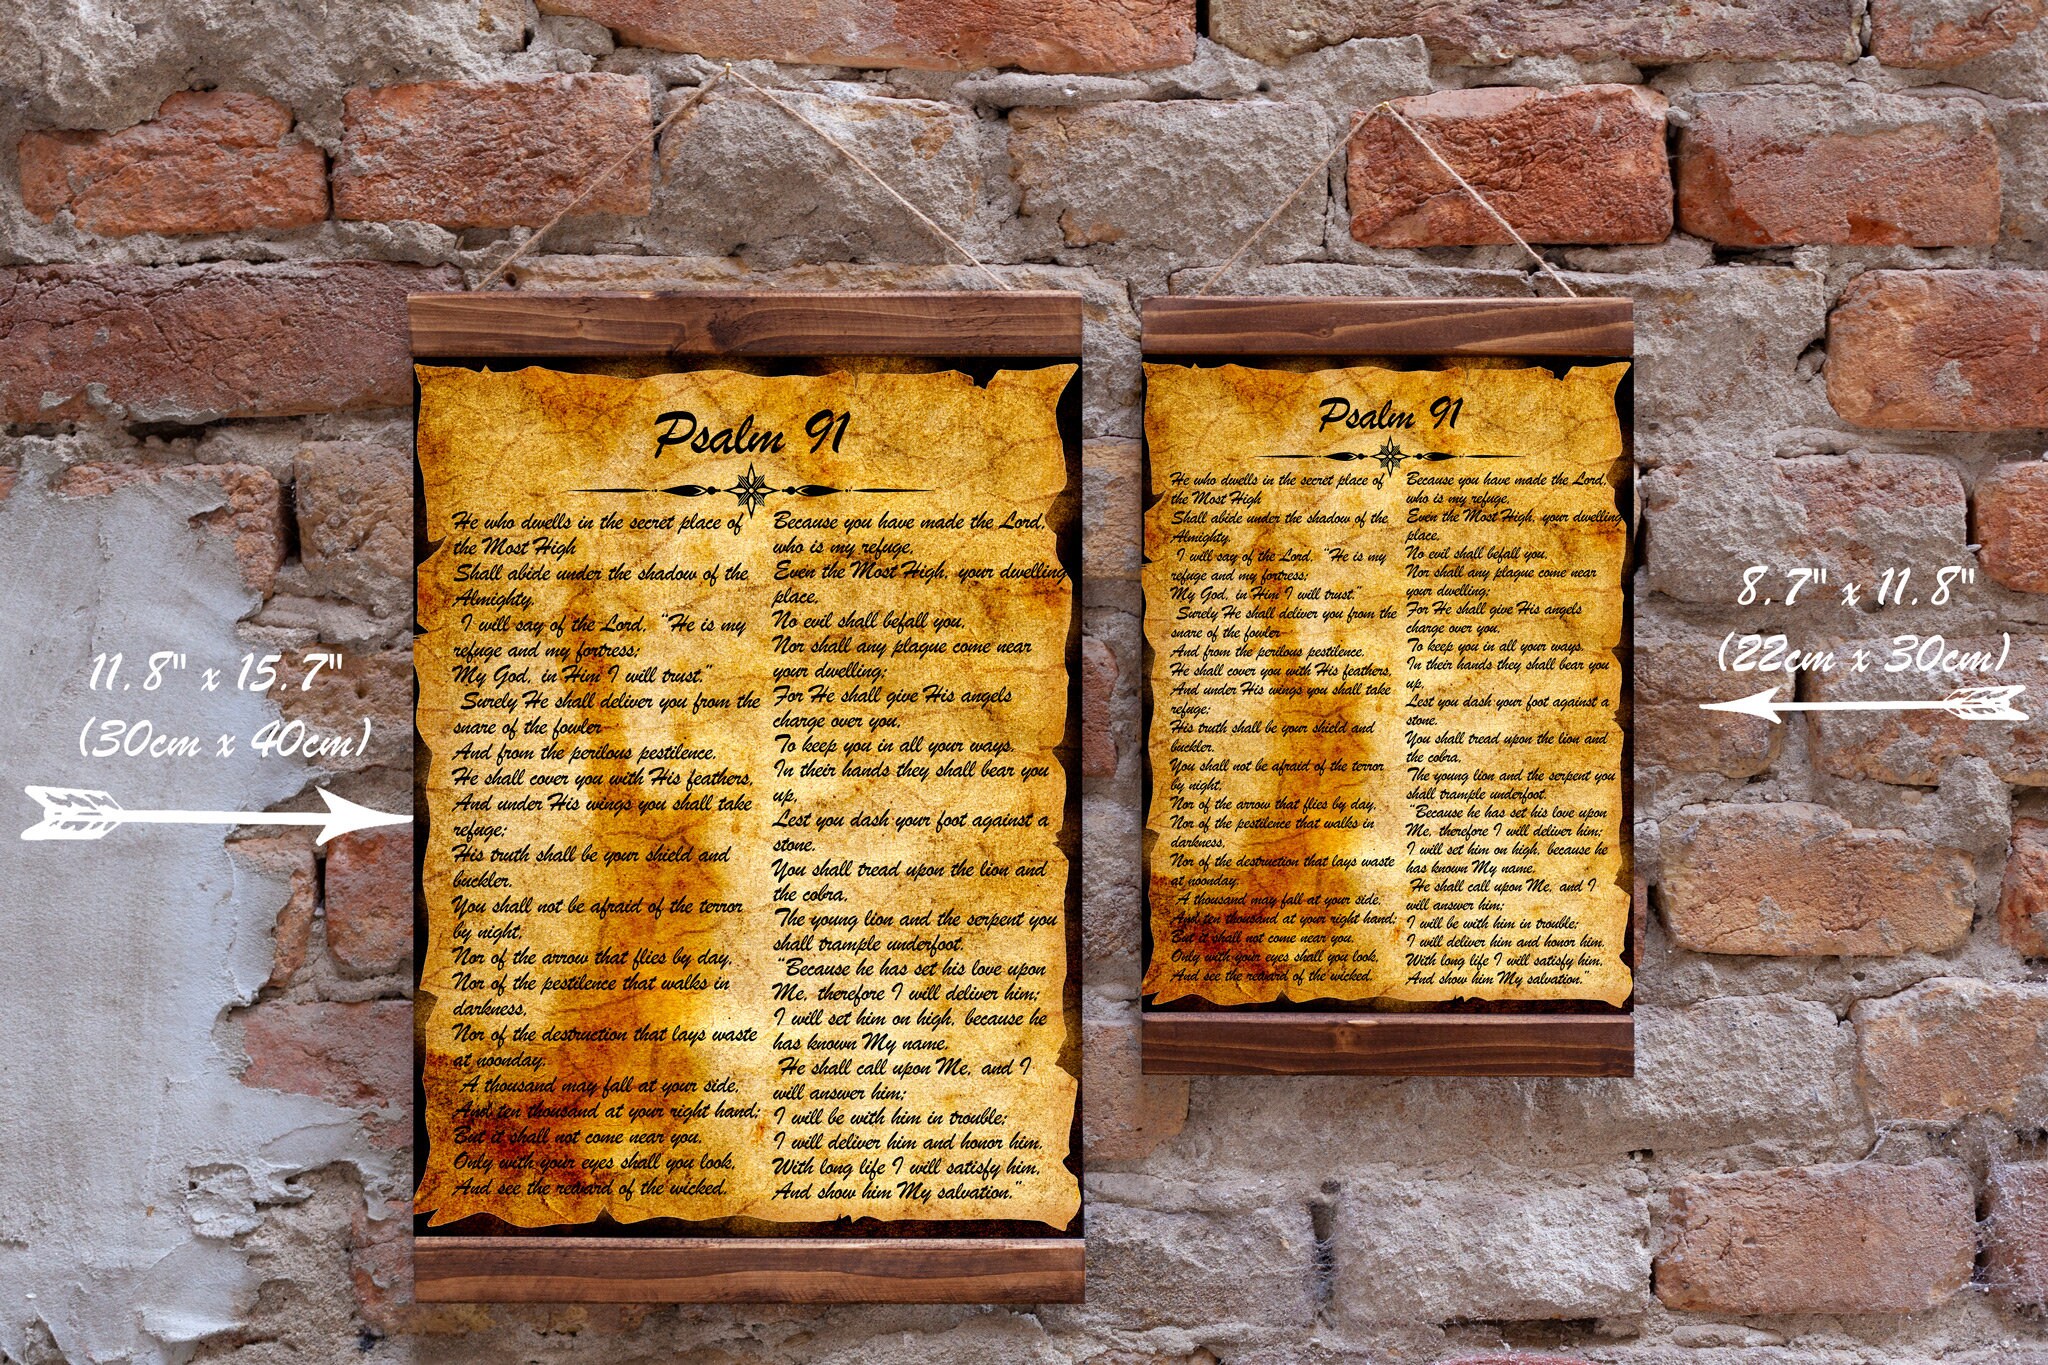 11.8" x 15.7"
(30cm x 40cm)
Psalm 91
He who dwells in the secret place of
the Most High
Shall abide under the shadow of the
Almighty.
I will say of the Lord, "He is my
refuge and my fortress;
My God, in Him I will trust."
Surely He shall deliver you from the
snare of the fowler
And from the perilous pestilence.
He shall cover you with His feathers,
And under His wings you shall take
refuge;
His truth shall be your shield and
buckler.
You shall not be afraid of the terror
by night,
Nor of the arrow that flies by day,
Nor of the pestilence that walks in
darkness,
Nor of the destruction that lays waste
at noonday.
A thousand may fall at your side,
And ten thousand at your right hand;
But it shall not come near you.
Only with your eyes shall you look,
And see the reward of the wicked.
Because you have made the Lord,
who is my refuge,
Even the Most High, your dwelling
place,
No evil shall befall you,
Nor shall any plague come near
your dwelling;
For He shall give His angels
charge over you,
To keep you in all your ways.
In their hands they shall bear you
up,
Lest you dash your foot against a
stone.
You shall tread upon the lion and
the cobra,
The young lion and the serpent you
shall trample underfoot.
"Because he has set his love upon
Me, therefore I will deliver him;
I will set him on high, because he
has known My name.
He shall call upon Me, and I
will answer him;
I will be with him in trouble;
I will deliver him and honor him.
With long life I will satisfy him,
And show him My salvation."
Psalm 91
He who dwells in the secret place of
the Most High
Shall abide under the shadow of the
Almighty.
I will say of the Lord, "He is my
refuge and my fortress;
My God, in Him I will trust."
Surely He shall deliver you from the
snare of the fowler
And from the perilous pestilence.
He shall cover you with His feathers,
And under His wings you shall take
refuge;
His truth shall be your shield and
buckler.
You shall not be afraid of the terror
by night,
Nor of the arrow that flies by day,
Nor of the pestilence that walks in
darkness,
Nor of the destruction that lays waste
at noonday.
A thousand may fall at your side,
And ten thousand at your right hand;
But it shall not come near you.
Only with your eyes shall you look,
And see the reward of the wicked.
Because you have made the Lord,
who is my refuge,
Even the Most High, your dwelling
place,
No evil shall befall you,
Nor shall any plague come near
your dwelling;
For He shall give His angels
charge over you,
To keep you in all your ways.
In their hands they shall bear you
up,
Lest you dash your foot against a
stone.
You shall tread upon the lion and
the cobra,
The young lion and the serpent you
shall trample underfoot.
"Because he has set his love upon
Me, therefore I will deliver him;
I will set him on high, because he
has known My name.
He shall call upon Me, and I
will answer him;
I will be with him in trouble;
I will deliver him and honor him.
With long life I will satisfy him,
And show him My salvation."
8.7" x 11.8"
(22cm x 30cm)